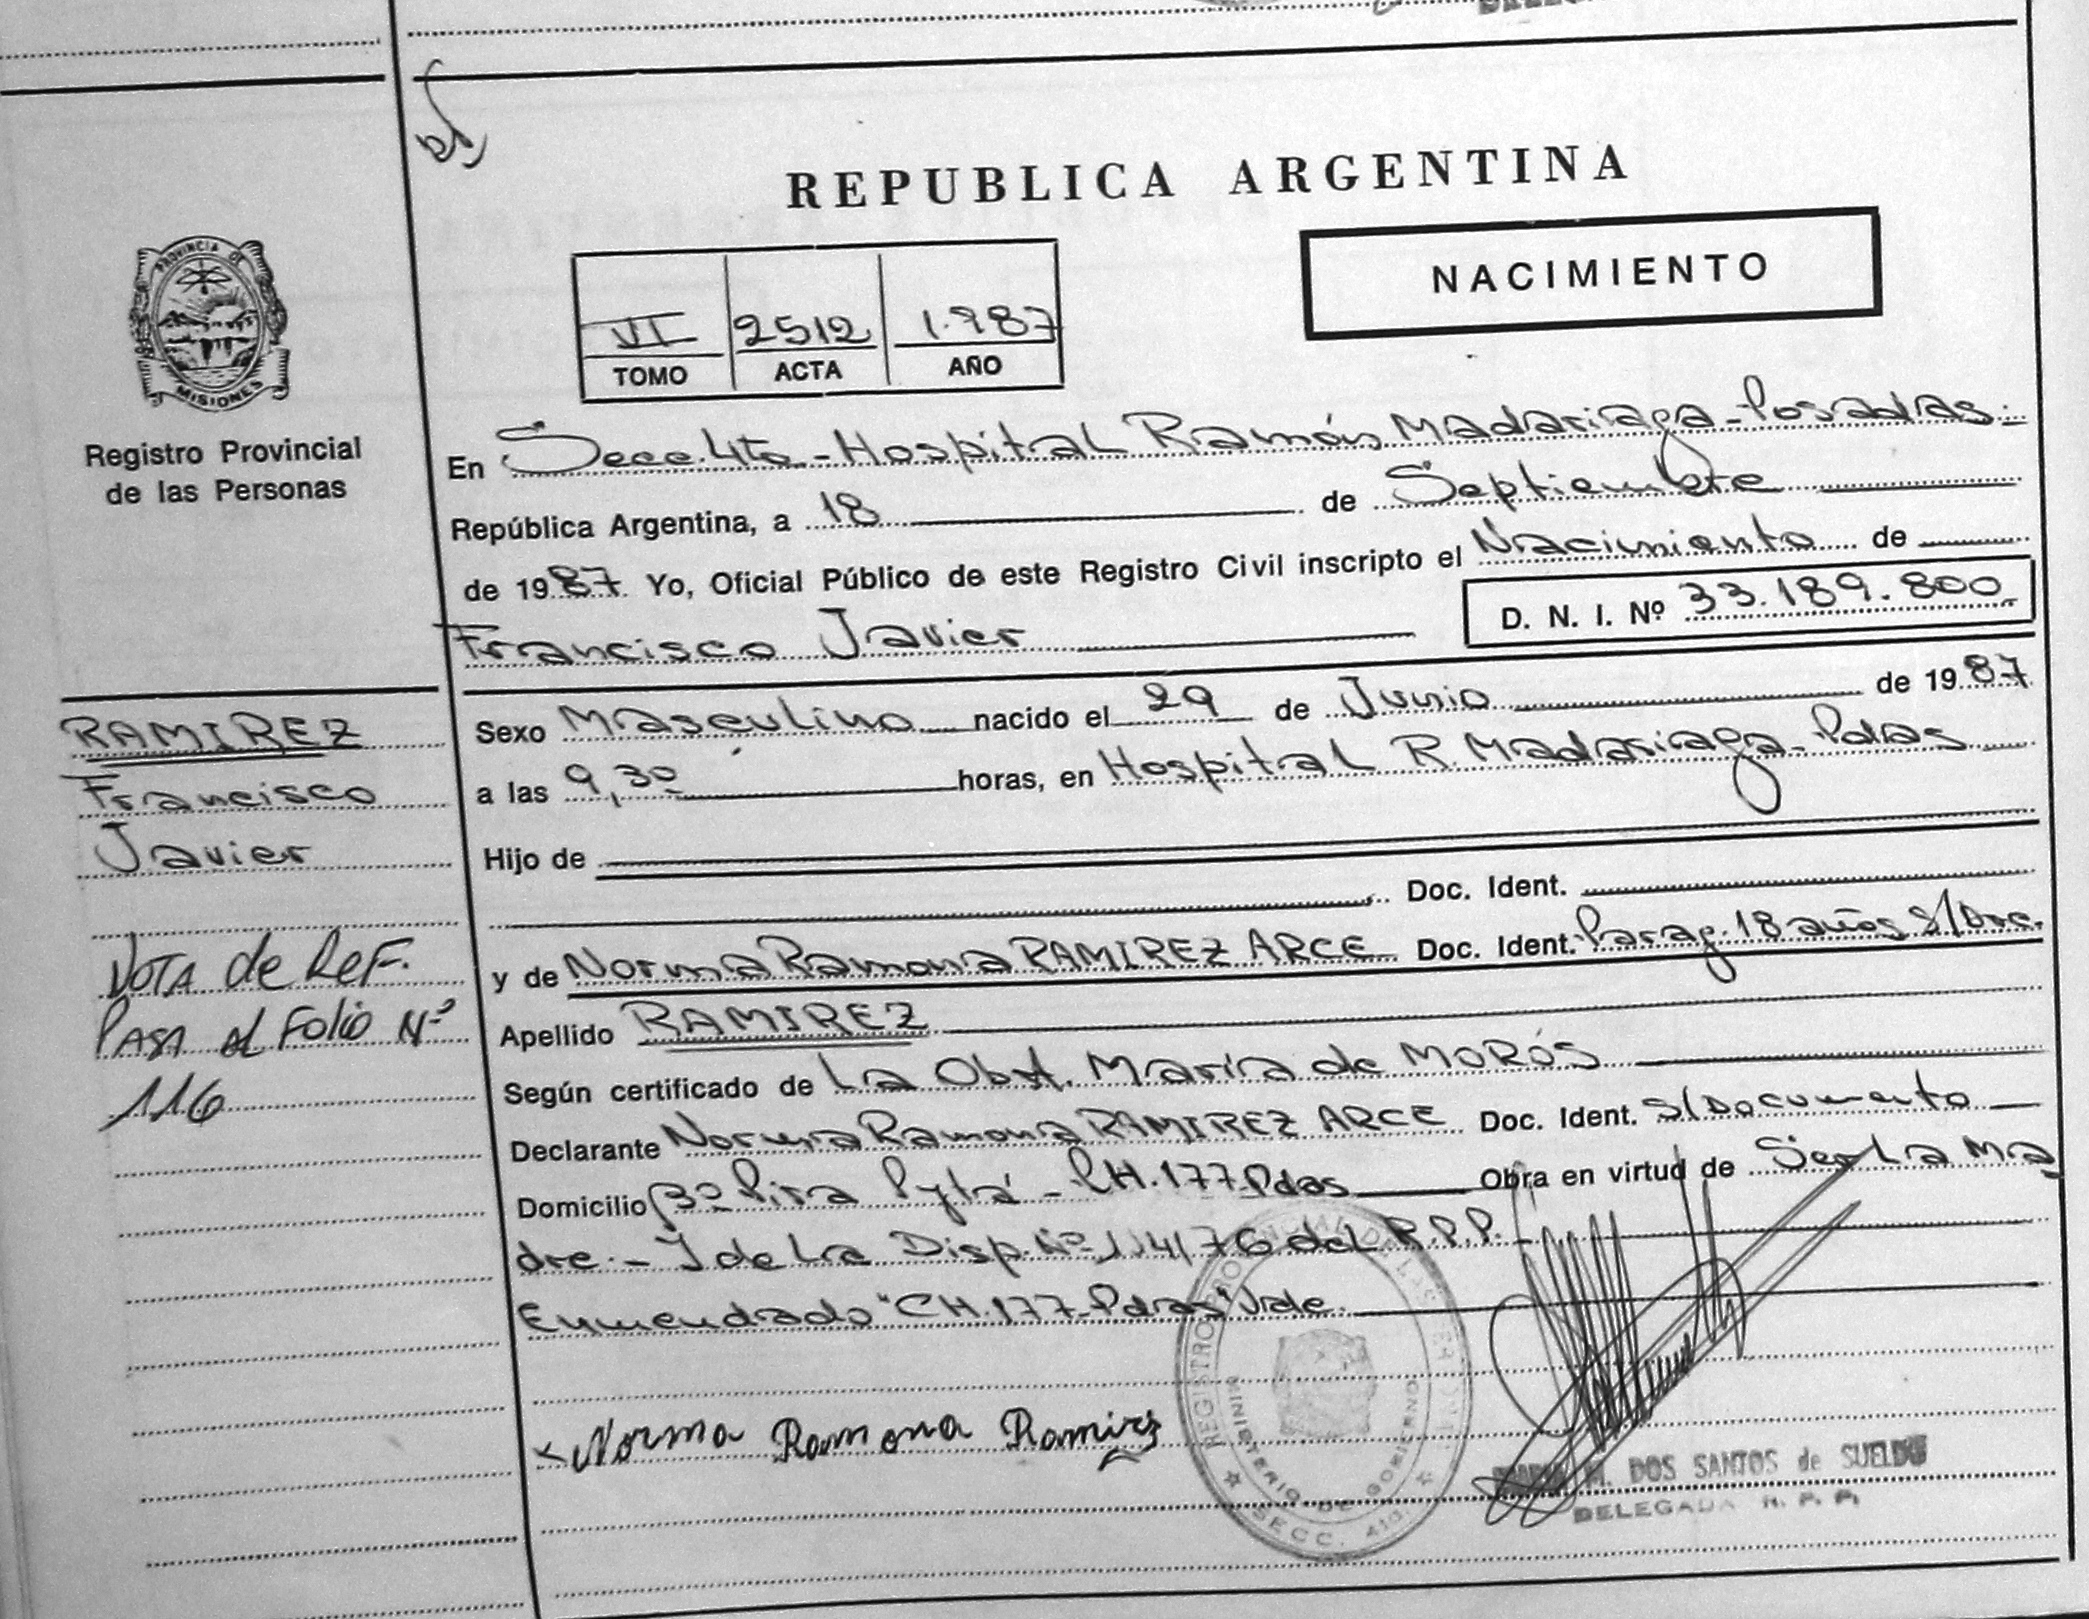 REPUBLICA ARGENTINA
NACIMIENTO
VI 2512 1.987
TOMO ACTA AÑO
PROVINCIA DE
MISIONES
Registro Provincial
de las Personas
En Secc. 4ta - Hospital Ramón Madariaga - Posadas.
República Argentina, a 18 de Septiembre
de 1987 Yo, Oficial Público de este Registro Civil inscripto el Nacimiento de
Francisco Javier
D. N. I. Nº 33.189.800
RAMIREZ
Francisco
Javier
NOTA de REF.
PASA al Folio Nº
116
Sexo Masculino nacido el 29 de Junio de 1987
a las 9,30 horas, en Hospital R. Madariaga - Pdas
Hijo de
Doc. Ident.
y de Norma Ramona RAMIREZ ARCE Doc. Ident. Parag. 18 años S/Doc.
Apellido RAMIREZ
Según certificado de La Obst. María de MORÓS
Declarante Norma Ramona RAMIREZ ARCE Doc. Ident. S/Documento
Domicilio Bº Pira Pytá - CH. 177 Pdas Obra en virtud de Ser La Ma
dre - Y de La Disp. Nº 114/76 del R.P.P.
Enmendado "CH. 177 - Pdas" Vale.
Norma Ramona Ramirez
REGISTRO PROVINCIAL DE LAS PERSONAS
MINISTERIO DE GOBIERNO
SECC. 4ta.
M. DOS SANTOS de SUELDO
DELEGADA R. P. P.